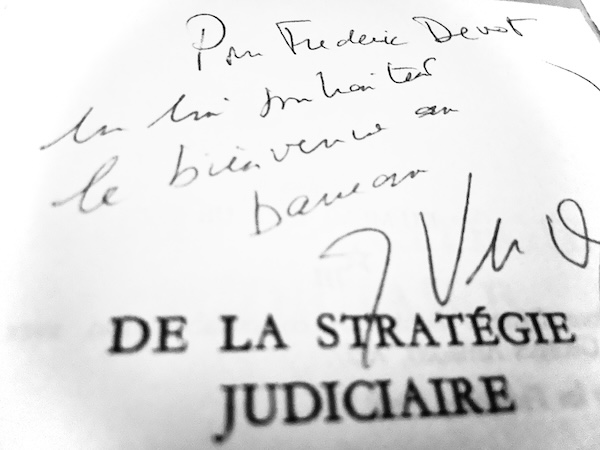 Pour Frederic Devot
en lui souhaitant
la bienvenue au
barreau
DE LA STRATÉGIE
JUDICIAIRE